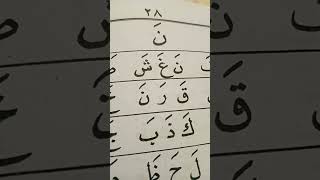 ٢٨
نَ
نَ غَ شَ
قَ رَ نَ
كَ ذَ بَ
لَ حَ ظَ